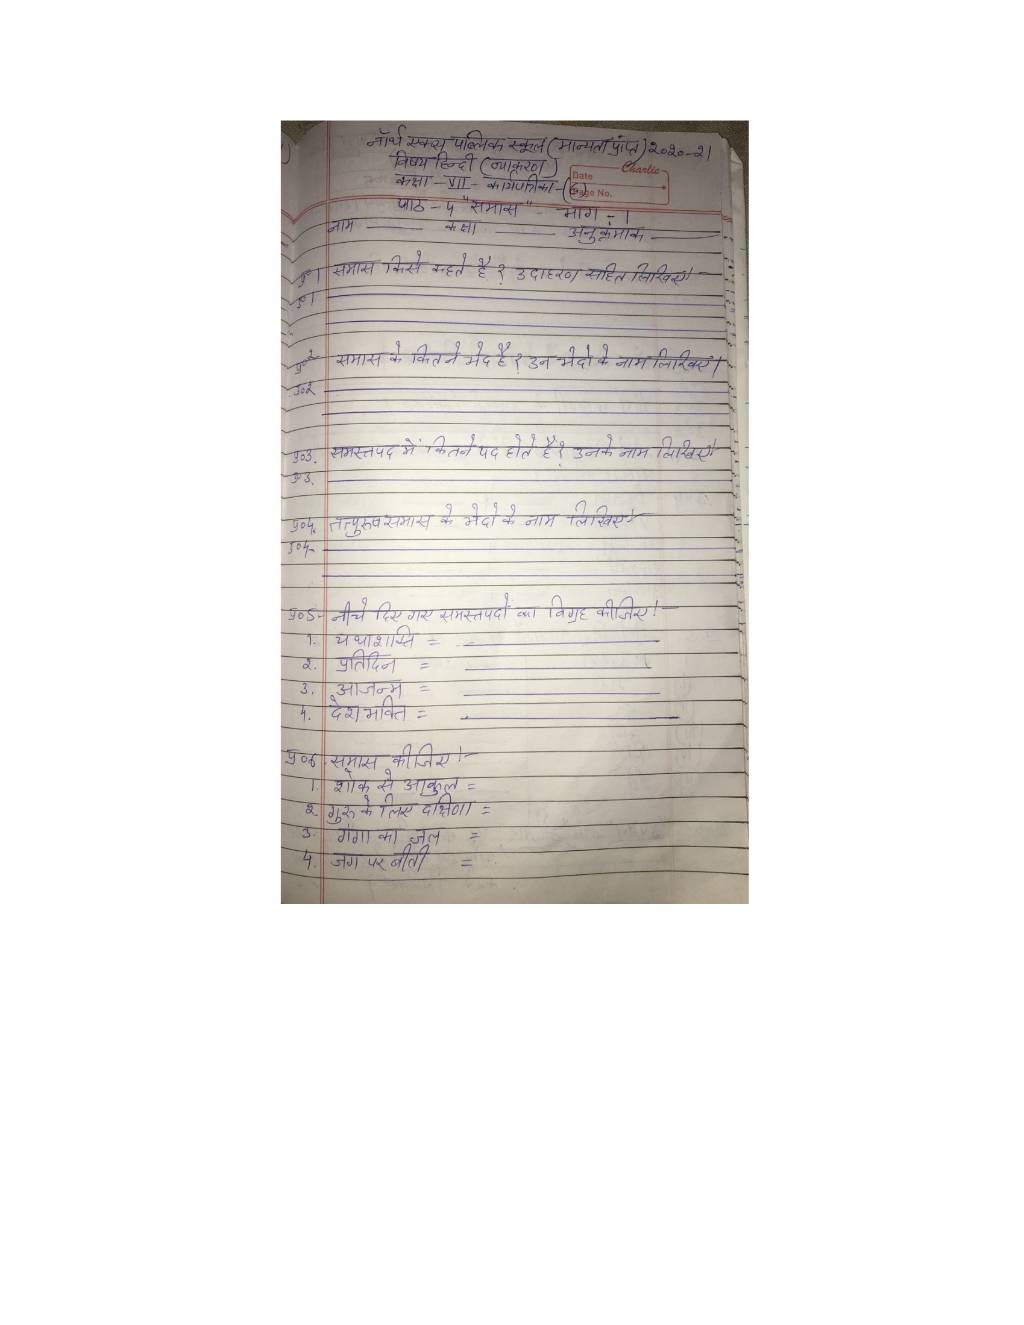 नॉर्थ एक्स पब्लिक स्कूल (मान्यता प्राप्त) २०२०-21
विषय हिन्दी (व्याकरण)
Charlie
Date
कक्षा - VII - कार्यपत्रिका - (6)
Page No.
पाठ - ५ "समास" - भाग - 1
नाम ______ कक्षा ______ अनुक्रमांक ______
प्र० 1 समास किसे कहते है ? उदाहरण सहित लिखिए।-
उ० 1
प्र० २ समास के कितने भेद है ? उन भेदो के नाम लिखिए।
उ०२
प्र०3. समस्तपद में कितने पद होते है ? उनके नाम लिखिए।-
उ० 3.
प्र०4. तत्पुरूष समास के भेदो के नाम लिखिए:-
उ०4-
प्र०5- नीचे दिए गए समस्तपदों का विग्रह कीजिए।-
1. यथाशक्ति = ______
2. प्रतिदिन = ______
3. आजन्म = ______
4. देशभक्ति = ______
प्र०6. समास कीजिए।-
1. शोक से आकुल =
2 गुरु के लिए दक्षिणा =
3. गंगा का जल =
4. जग पर बीती =